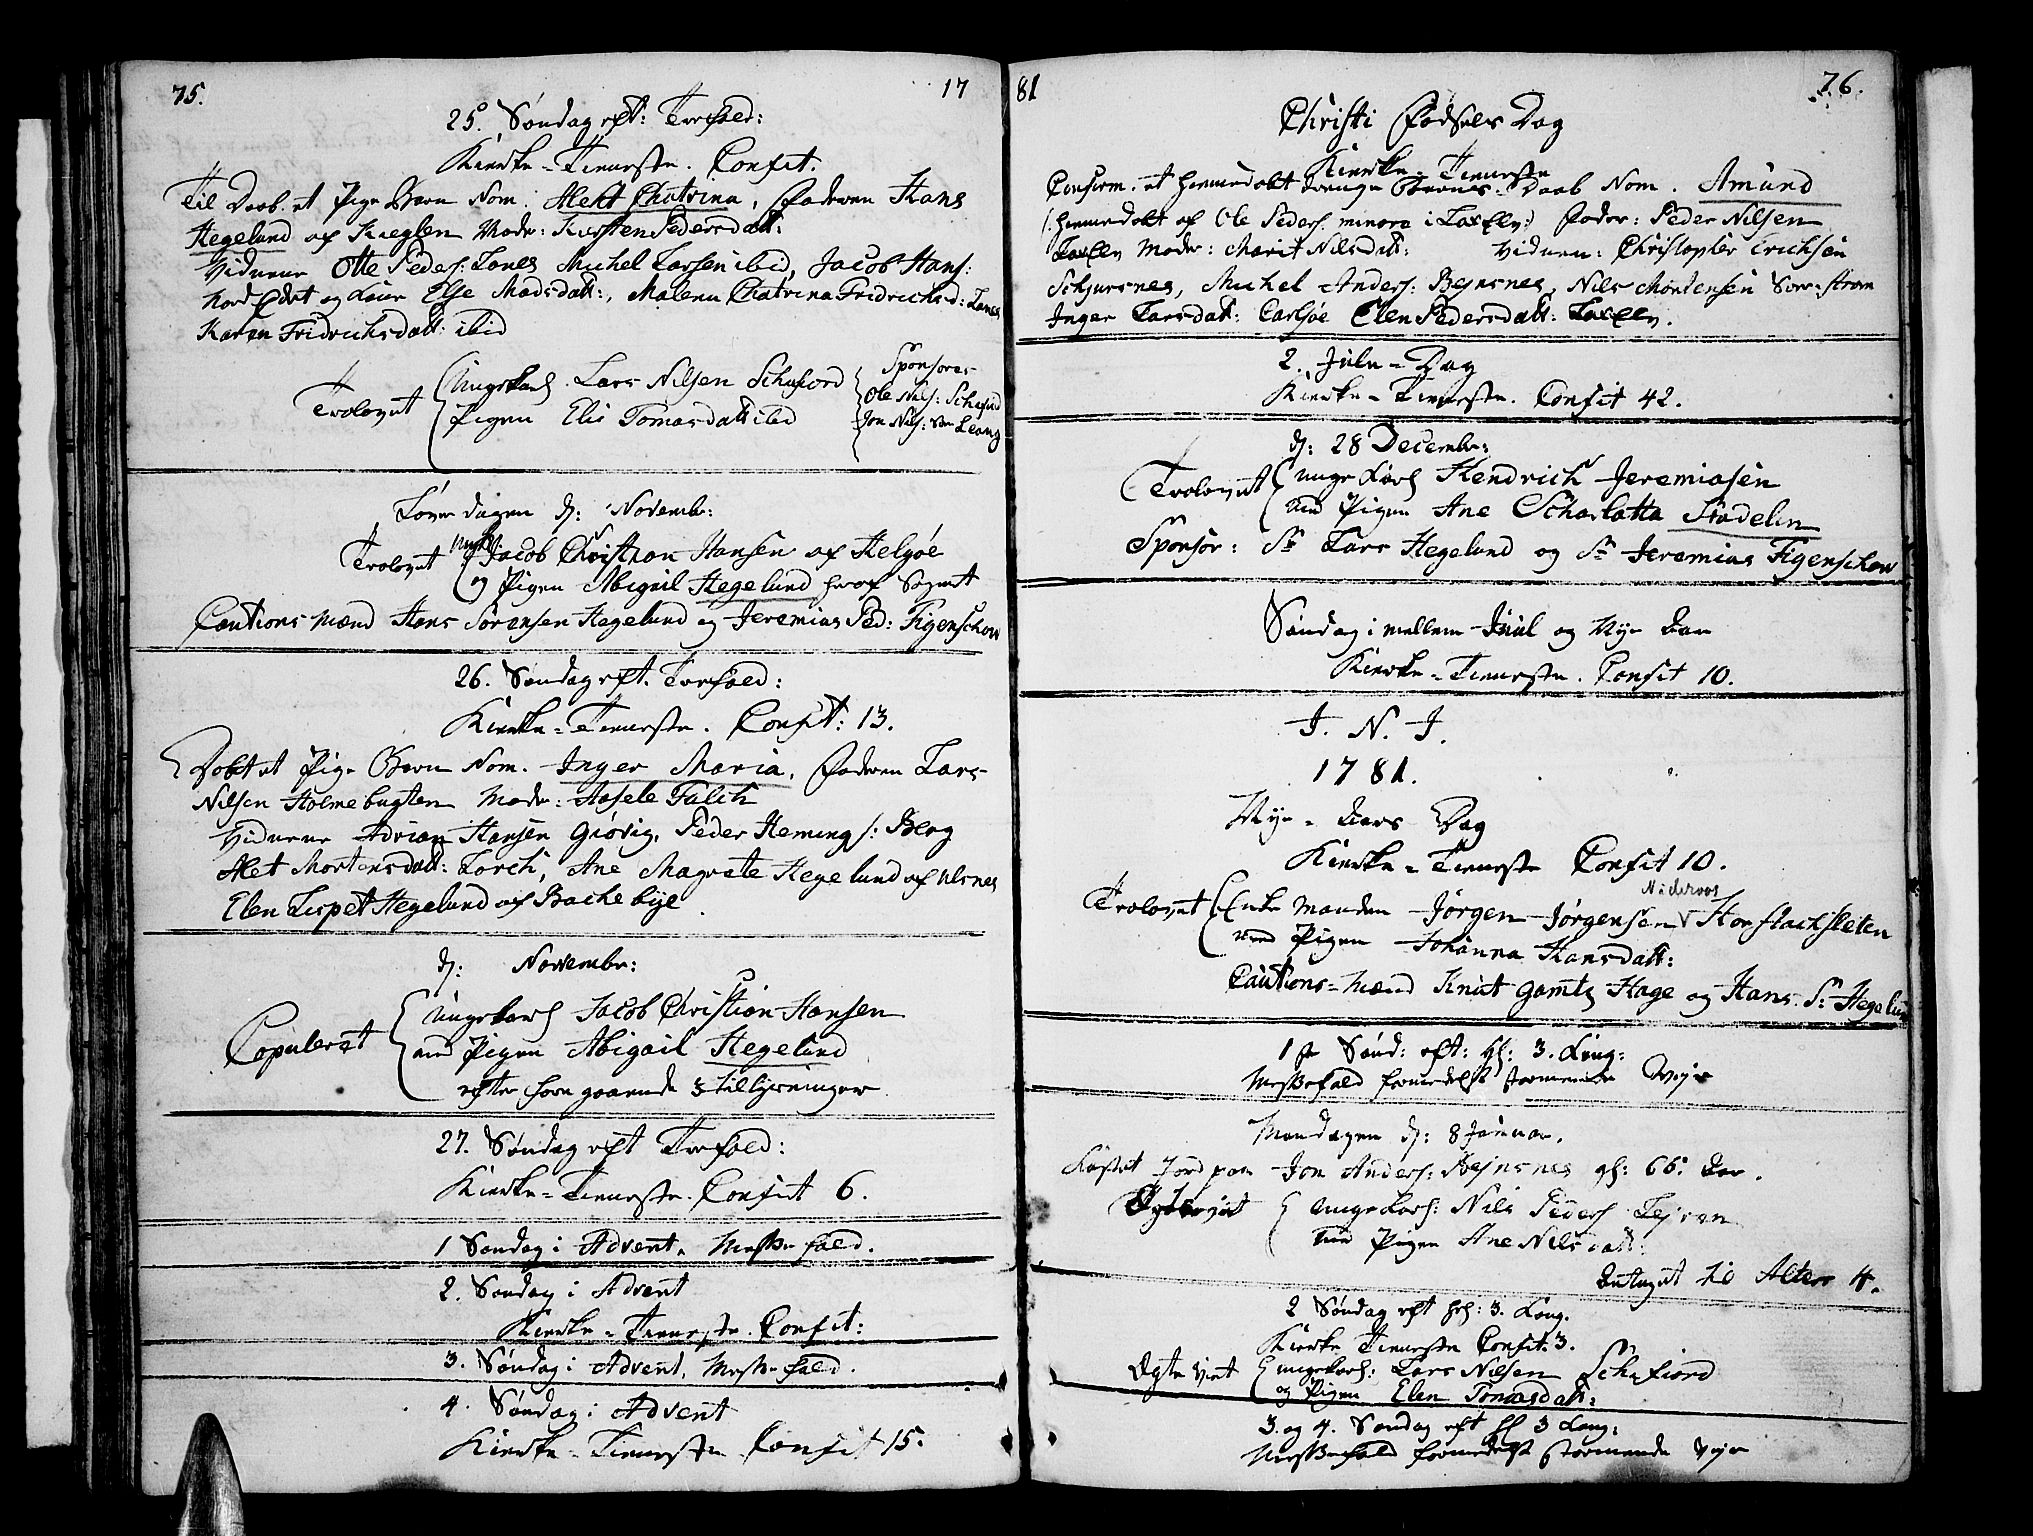 75. 17
25. Søndag eft: Trefold:
Kierke-Tieneste. Confit.
Til Daab et Pige Barn Nom. Alett Chatrina, Faderen Hans
Hegelund af Moder: Kirsten Pedersdatt:
Vidnerne Otte Peders: Lanes Michel Larsen ibid, Jacob Hans:
Nord Eidet og Kone Else Madsdatt:, Malena Chatrina Fridrichsd: Lanes
Karen Fridrichsdatt: ibid
Sponsores
Trolovet Ungekarl Lars Nilsen Schafiord Ole Nils: Schafiord
Pigen Elis Tomasdatt ibid Jon Nils:
Løverdagen d: Novembr:
Trolovet Ungk: Jacob Christian Hansen af Helgøe
og Pigen Abigail Hegelund her af Sognet
Cautions-Mænd Hans Sørensen Hegelund og Jeremias Ped: Figenschou
26. Søndag eft. Trefold:
Kierke-Tieneste. Confit: 13.
Døbt et Pige Barn Nom. Inger Maria, Faderen Lars
Nilsen Holmebugten Moder: Falch
Vidnerne Adrian Hansen Giøvig, Peder Heming s: Berg
Alet Mortensdatt: Lorch, Ane Magrete Hegelund af Ulsnes
Elen Lispet Hegelund af Bachebye.
d: Novembr:
Copuleret Ungekarl Jacob Christian Hansen
med Pigen Abigail Hegelund
efter foregaaende 3 tillysninger
27. Søndag eft Trefold:
Kierke-Tieneste. Confit 6.
1 Søndag i Advent. Messefald.
2. Søndag i Advent
Kierke-Tieneste. Confit:
3. Søndag i Advent. Messefald.
4. Søndag i Advent
Kierke-Tieneste Confit 15.
81 76.
Christi Fødsels Dag
Kierke-Tieneste
Confirm. et hiemmedøbt Drenge Barnes Daab Nom. Amund
(hiemmedøbt af Ole Peders. minore i Laxelv:) Fader: Peder Nilsen
Laxelv Moder: Marit Nilsdatt: Vidnere: Christopher Erichsen
Schjursnes, Michel Anders: Bejnsnes, Nils Mortensen Sørstrøm
Inger Larsdatt: Carlsøe Elen Pedersdatt: Laxelv.
2. Jule-Dag
Kierke-Tieneste. Confit 42.
d: 28 Decembr:
Trolovet Unge Karl Hendrich Jeremiasen
med Pigen Ane Scharlotta Stadelin
Sponsor: Sr Lars Hegelund og Sr Jeremias Figenschou
Søndag imellem Juul og Nye Aar
Kierke-Tieneste. Confit 10.
I. N. J.
1781.
Nye-Aars Dag
Kierke-Tieneste Confit 10.
Trolovet Enke Manden Jørgen Jørgensen Horstachsleten
med Pigen Johanna Hansdatt:
Cautions-Mænd Knut Gamtz Hage og Hans Sr Hegelund
1ste Sønd: eft: hl: 3. Kong:
Messefald formedelst stormende Vejr
Mandagen d: 8 Januar.
Kastet Jord paa Jon Anders: Bejnsnes gl: 66. Aar.
Ungekarl: Nils Peders
med Pigen Ane Nilsdatt:
Antaget til Alters 4.
2 Søndag eft hel: 3. Kong.
Kierke Tieneste Confit. 3.
Ægteviet Ungekarl: Lars Nilsen Schafiord
og Pigen Elen Tomasdatt:
3. og 4. Søndag eft hl 3 Kong:
Messefald formedelst stormende Vejr